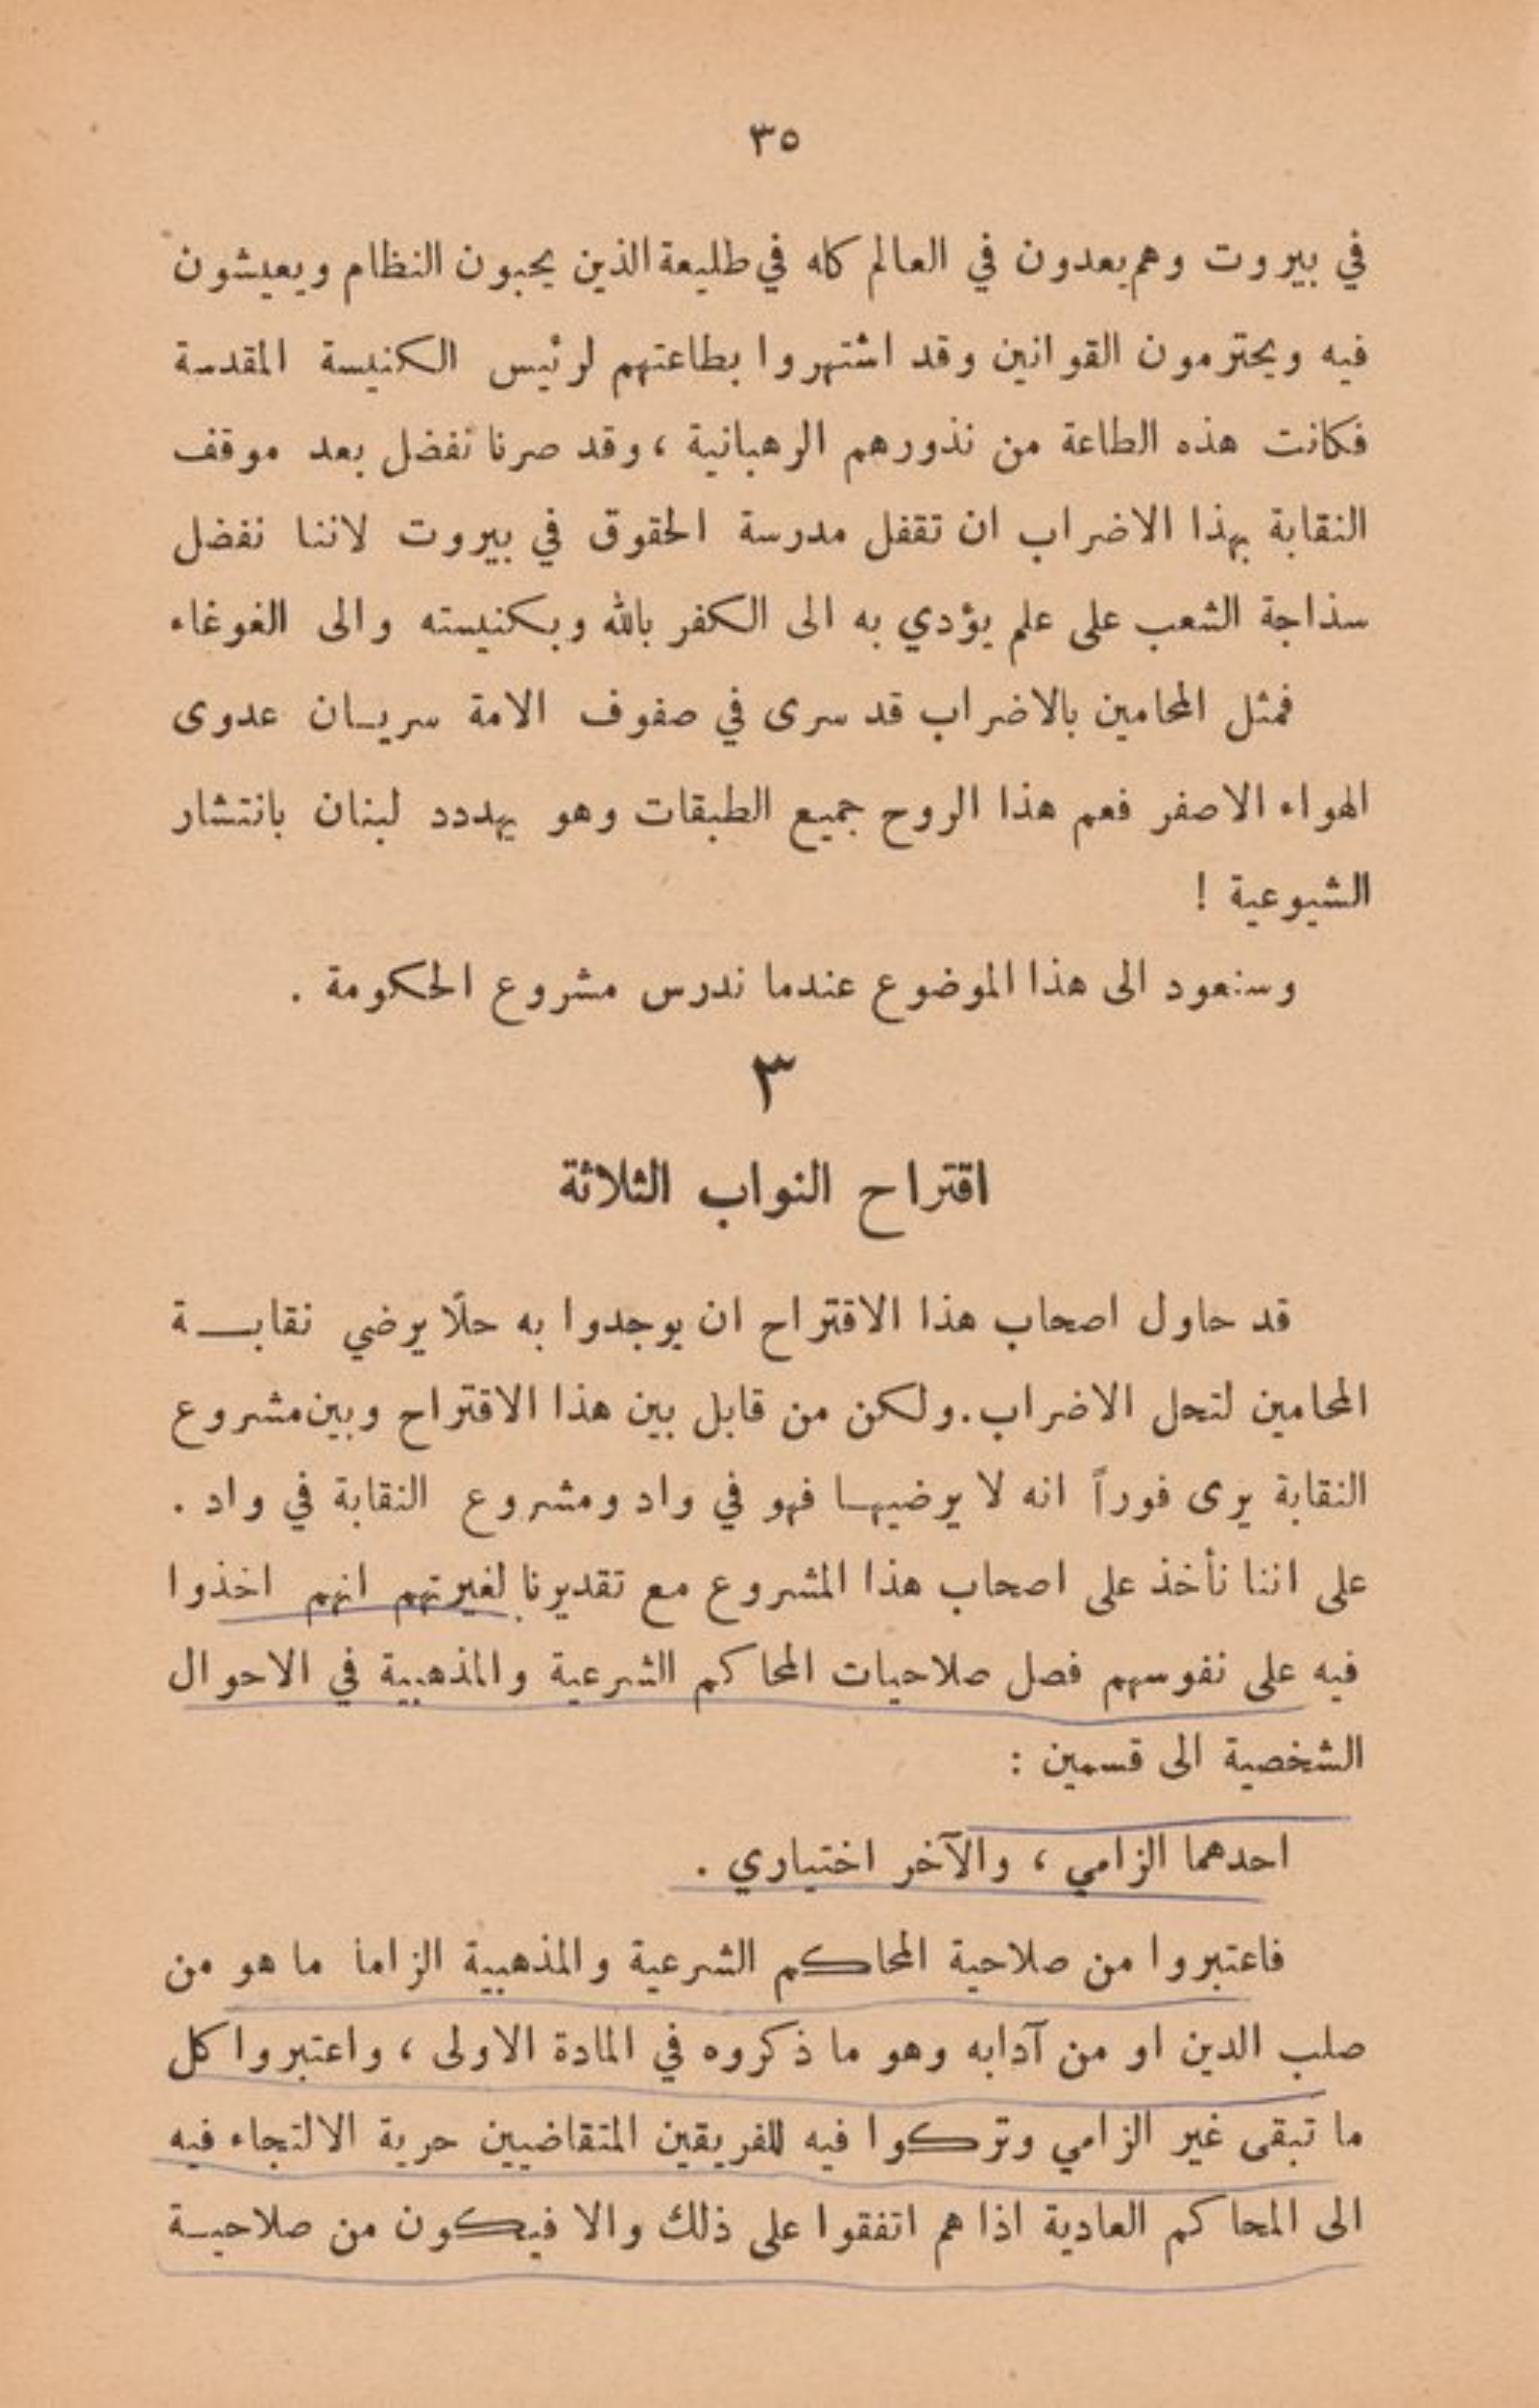 ٣٥
في بيروت وهم يعدون في العالم كله في طليعة الذين يحبون النظام ويعيشون
فيه ويحترمون القوانين وقد اشتهروا بطاعتهم لرئيس الكنيسة المقدسة
فكانت هذه الطاعة من نذورهم الرهبانية ، وقد صرنا نفضل بعد موقف
النقابة بهذا الاضراب ان تقفل مدرسة الحقوق في بيروت لاننا نفضل
سذاجة الشعب على علم يؤدي به الى الكفر بالله وبكنيسته والى الغوغاء
فمثل المحامين بالاضراب قد سرى في صفوف الامة سريان عدوى
الهواء الاصفر فعم هذا الروح جميع الطبقات وهو يهدد لبنان بانتشار
الشيوعية !
وسنعود الى هذا الموضوع عندما ندرس مشروع الحكومة .
٣
اقتراح النواب الثلاثة
قد حاول اصحاب هذا الاقتراح ان يوجدوا به حلًا يرضي نقابة
المحامين لتحل الاضراب. ولكن من قابل بين هذا الاقتراح وبين مشروع
النقابة يرى فوراً انه لا يرضيها فهو في واد ومشروع النقابة في واد .
على اننا نأخذ على اصحاب هذا المشروع مع تقديرنا لغيرتهم انهم اخذوا
فيه على نفوسهم فصل صلاحيات المحاكم الشرعية والمذهبية في الاحوال
الشخصية الى قسمين :
احدهما الزامي ، والآخر اختياري .
فاعتبروا من صلاحية المحاكم الشرعية والمذهبية الزاما ما هو من
صلب الدين او من آدابه وهو ما ذكروه في المادة الاولى ، واعتبروا كل
ما تبقى غير الزامي وتركوا فيه للفريقين المتقاضيين حرية الالتجاء فيه
الى المحاكم العادية اذا هم اتفقوا على ذلك والا فيكون من صلاحية